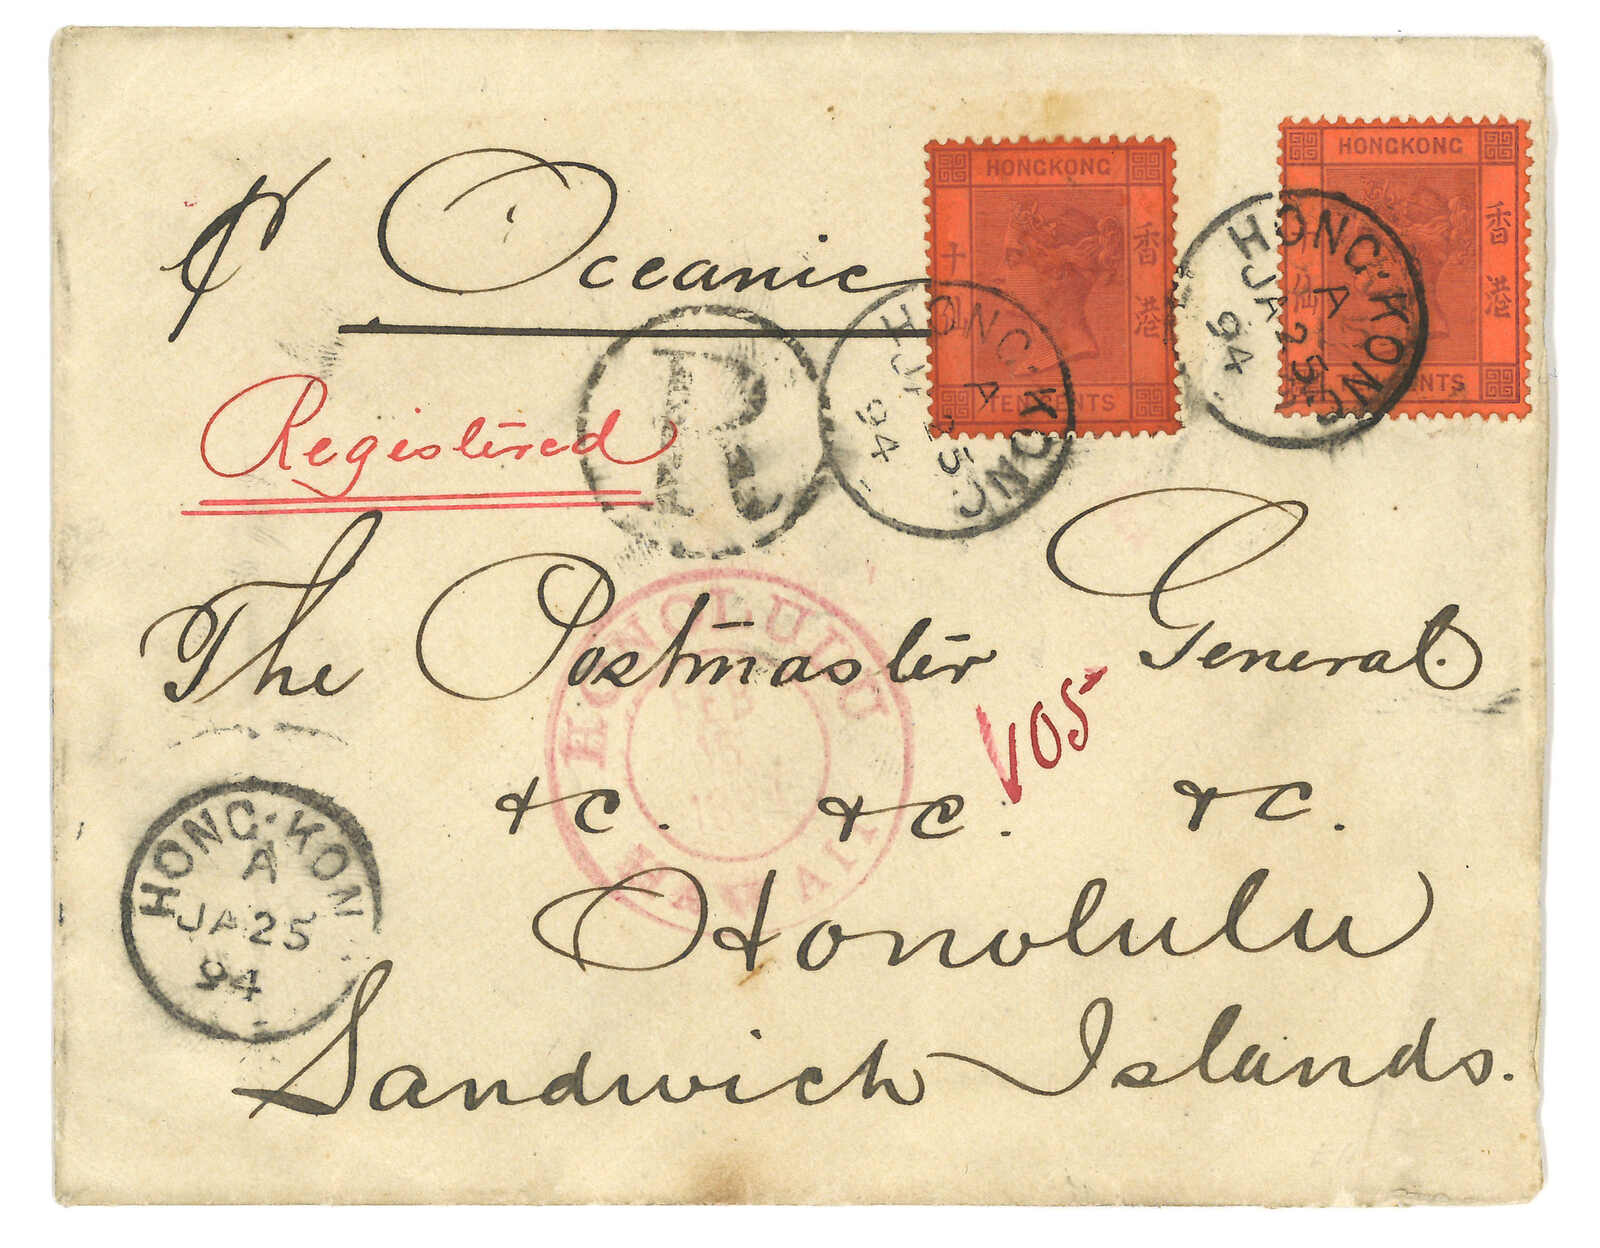 ℘ Oceanic
Registered
R
HONGKONG
香港
TEN CENTS
HONG·KONG
A
JA 25
94
HONGKONG
香港
CENTS
HONG·KONG
A
JA 25
94
The Postmaster General.
105
&c. &c. &c.
HONOLULU
FEB
HAWAII
Honolulu
Sandwich Islands.
HONG·KON
A
JA 25
94